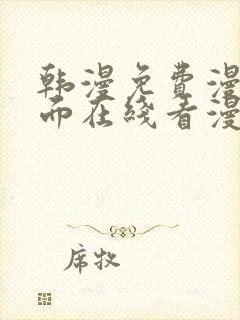 韩漫免费漫
而在线看漫
席牧